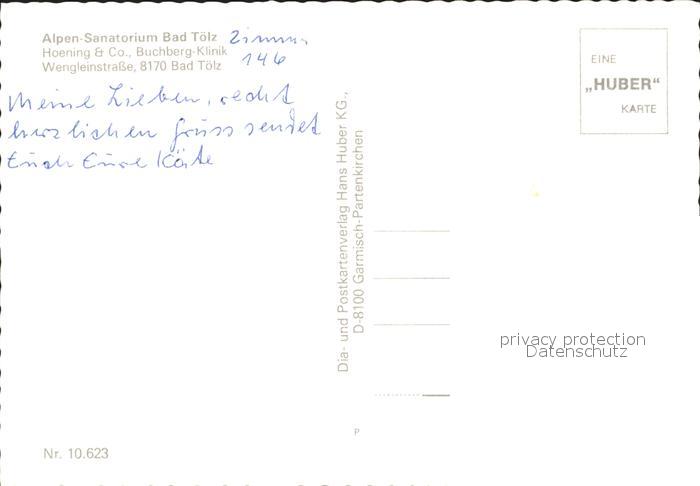 Alpen-Sanatorium Bad Tölz Zimmer
Hoening & Co., Buchberg-Klinik 146
Wengleinstraße, 8170 Bad Tölz
Meine Lieben, recht
herzlichen Gruss sendet
Euch Eure Käte
Dia- und Postkartenverlag Hans Huber KG.,
D-8100 Garmisch-Partenkirchen
EINE
„HUBER“
KARTE
privacy protection
Datenschutz
P
Nr. 10.623